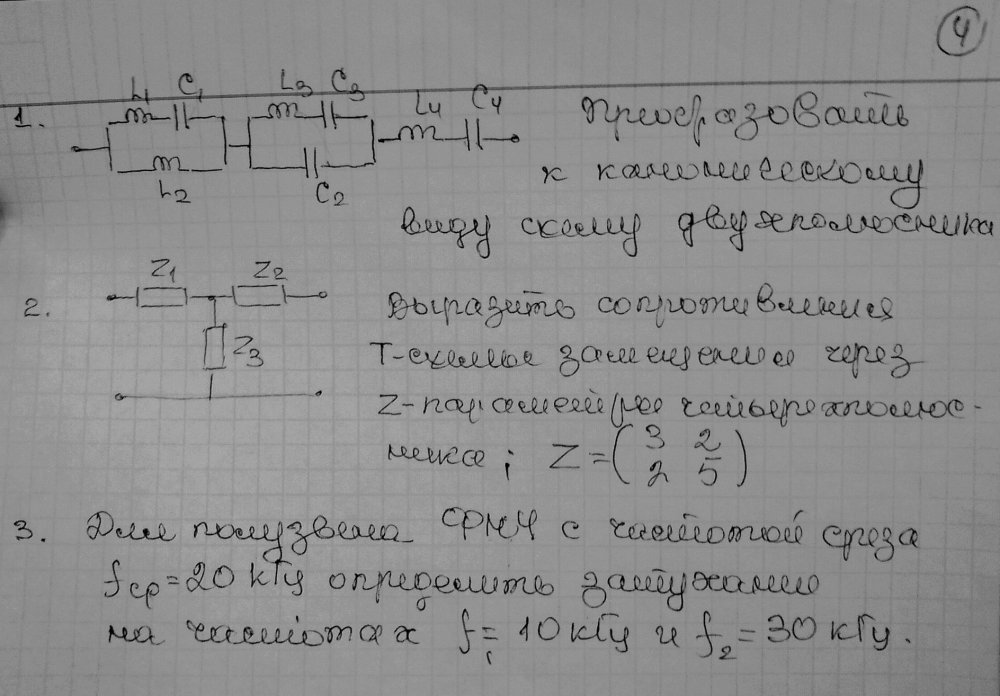 4
L1 C1 L3 C3 L4 C4
1. Преобразовать
L2 C2 к каноническому
виду схему двухполюсника
2. Z1 Z2 Выразить сопротивления
Z3 Т-схемы замещения через
Z-параметры четырехполюс-
ника; Z = (3 2
2 5)
3. Для полузвена ФНЧ с частотой среза
fср = 20 кГц определить затухание
на частотах f1 = 10 кГц и f2 = 30 кГц.